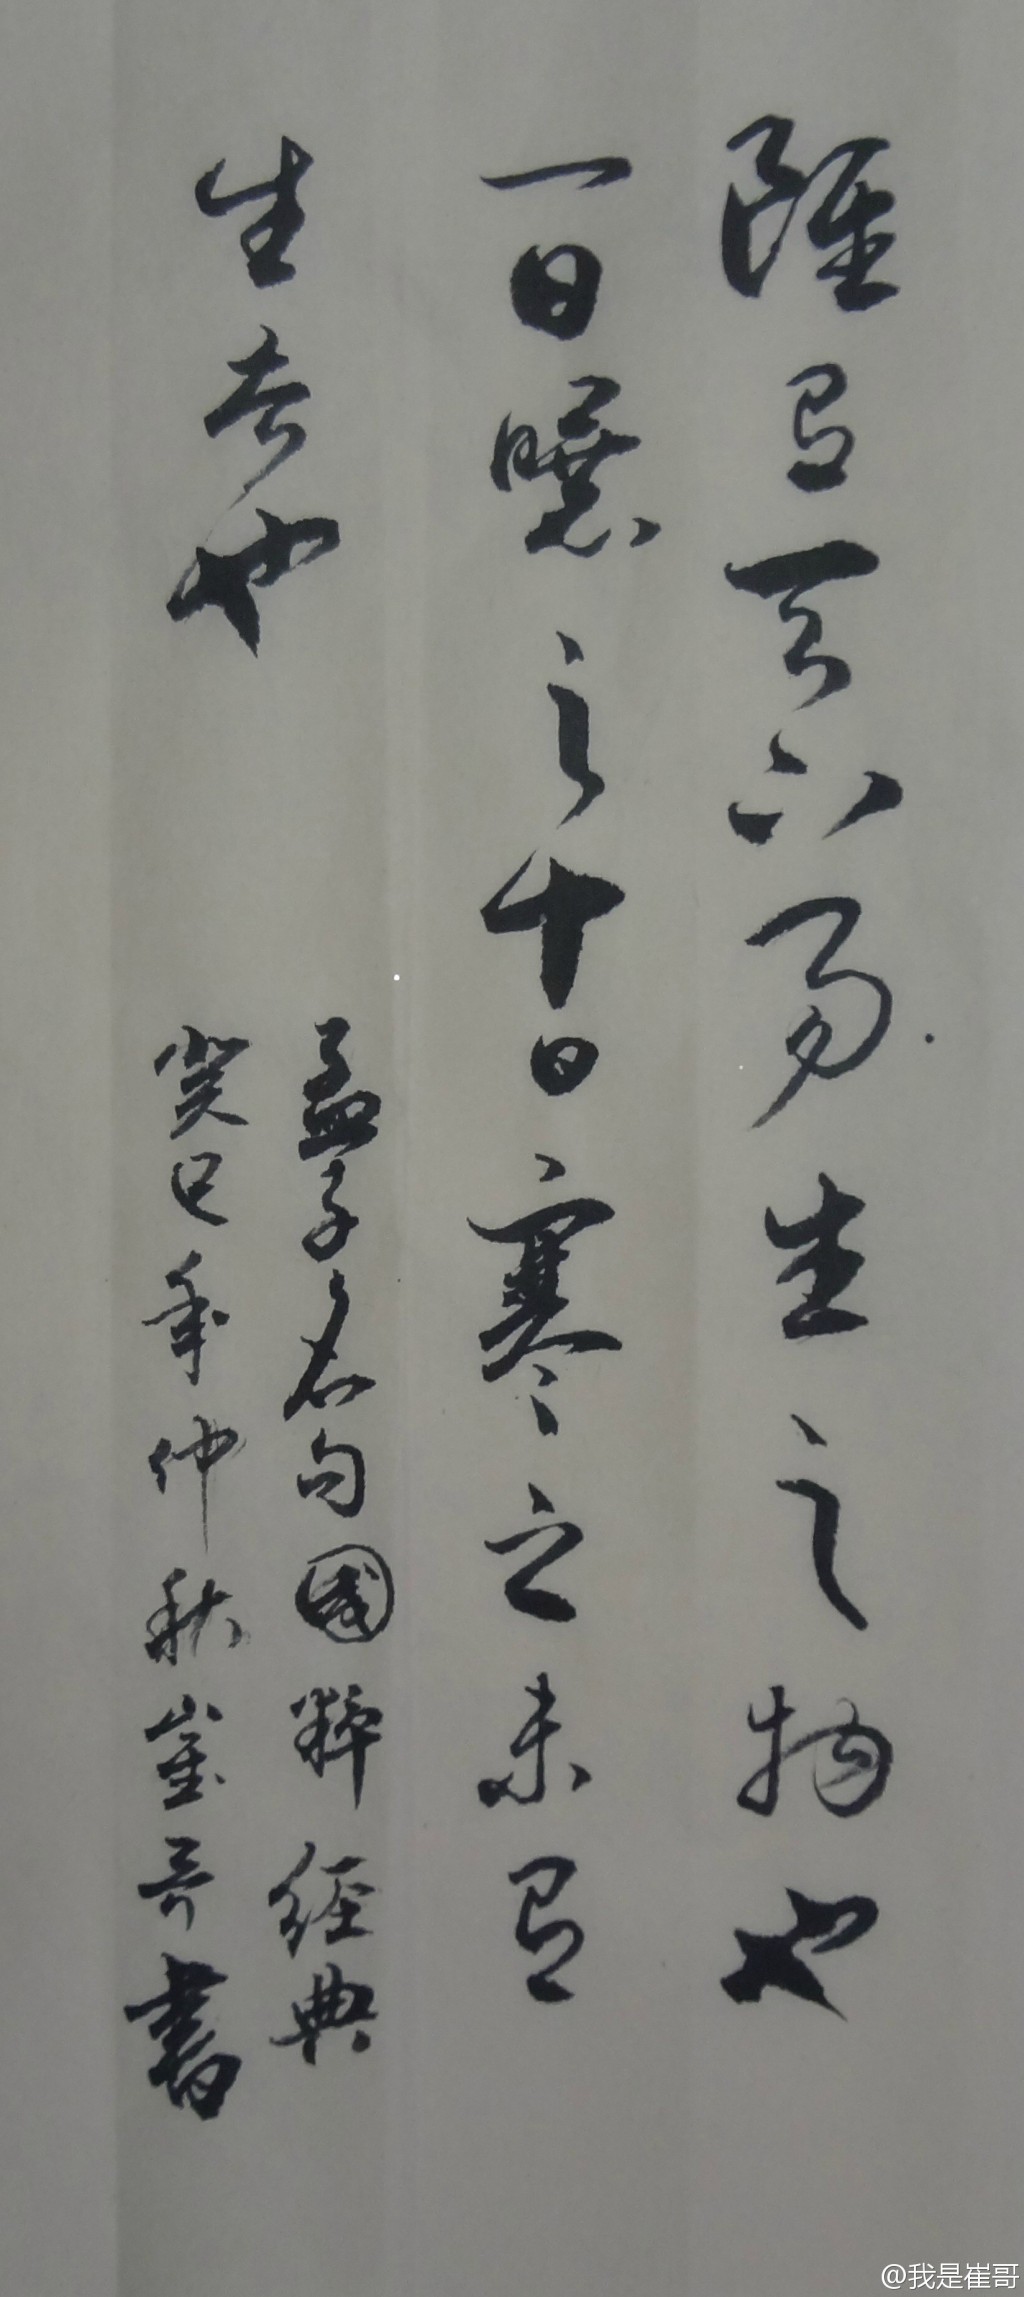 雖有天下易生之物也
一日曝之十日寒之未有
生者也
孟子名句國粹經典
癸巳年仲秋崔哥書
@我是崔哥